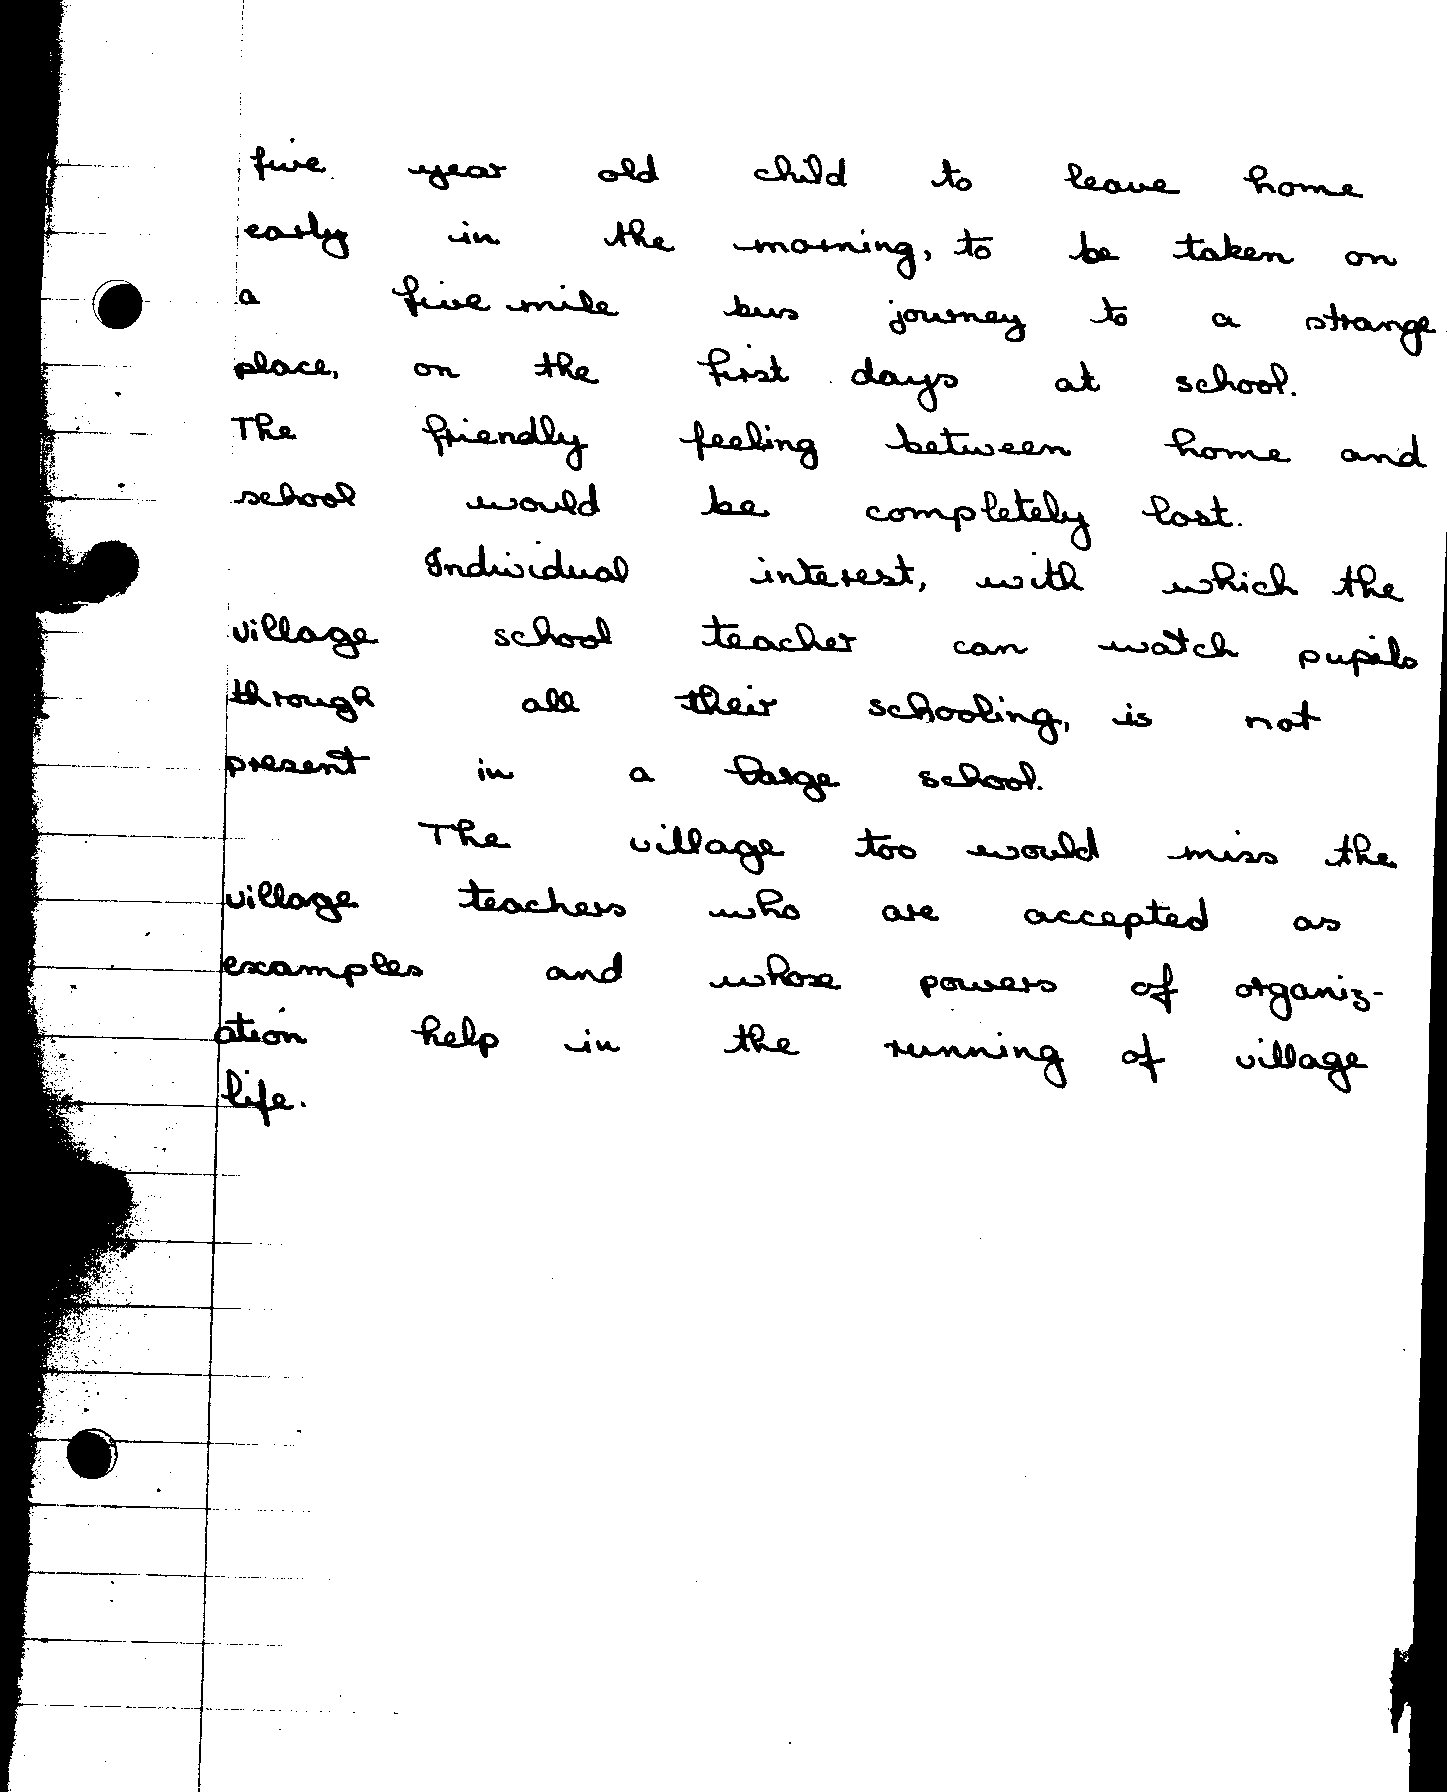 five year old child to leave home
early in the morning, to be taken on
a five mile bus journey to a strange
place, on the first days at school.
The friendly feeling between home and
school would be completely lost.
Individual interest, with which the
village school teacher can watch pupils
through all their schooling, is not
present in a large school.
The village too would miss the
village teachers who are accepted as
examples and whose powers of organiz-
ation help in the running of village
life.